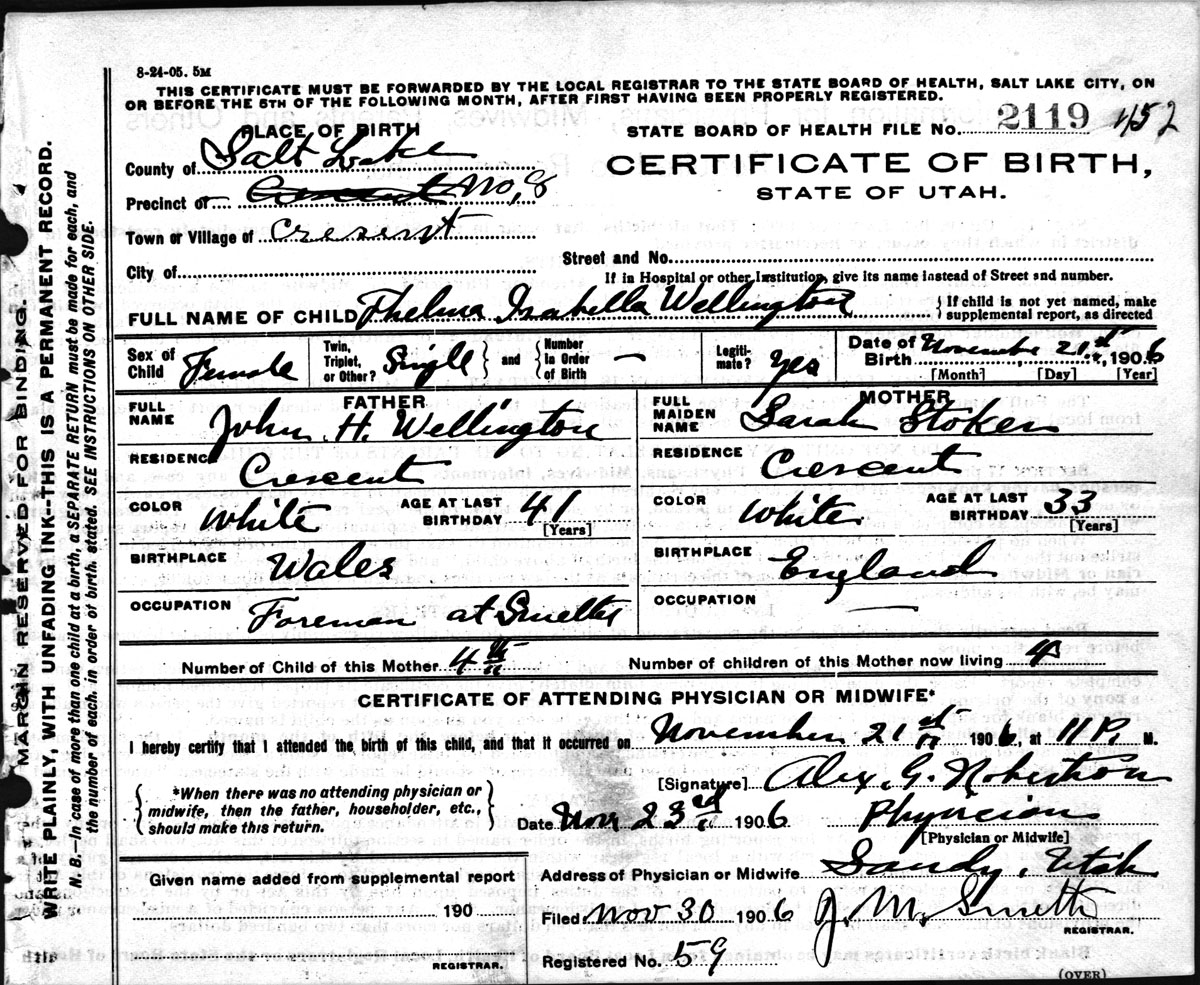 8-24-05. 5M
THIS CERTIFICATE MUST BE FORWARDED BY THE LOCAL REGISTRAR TO THE STATE BOARD OF HEALTH, SALT LAKE CITY, ON
OR BEFORE THE 5TH OF THE FOLLOWING MONTH, AFTER FIRST HAVING BEEN PROPERLY REGISTERED.
STATE BOARD OF HEALTH FILE NO. 2119 452
PLACE OF BIRTH
County of Salt Lake
CERTIFICATE OF BIRTH,
STATE OF UTAH.
Precinct of No. 8
Town or Village of Cresent
Street and No.
City of
If in Hospital or other Institution, give its name instead of Street and number.
FULL NAME OF CHILD Thelma Isabella Wellington
If child is not yet named, make
supplemental report, as directed
Sex of Child Female
Twin, Triplet, or Other? Single
and
Number in Order of Birth —
Legiti-mate? Yes
Date of Birth November 21st, 1906
[Month] [Day] [Year]
FATHER
FULL NAME John H. Wellington
RESIDENCE Crescent
COLOR White
AGE AT LAST BIRTHDAY 41
[Years]
BIRTHPLACE Wales
OCCUPATION Foreman at Smelter
MOTHER
FULL MAIDEN NAME Sarah Stokes
RESIDENCE Crescent
COLOR White
AGE AT LAST BIRTHDAY 33
[Years]
BIRTHPLACE England
OCCUPATION —
Number of Child of this Mother 4th
Number of children of this Mother now living 4
CERTIFICATE OF ATTENDING PHYSICIAN OR MIDWIFE*
I hereby certify that I attended the birth of this child, and that it occurred on November 21st 1906, at 11 P. M.
*When there was no attending physician or
midwife, then the father, householder, etc.,
should make this return.
[Signature] Alex. G. Robertson
Date Nov 23rd 1906 Physician
[Physician or Midwife]
Address of Physician or Midwife Sandy, Utah
Given name added from supplemental report
190
REGISTRAR.
Filed Nov 30 1906 J. M. Smith
REGISTRAR.
Registered No. 59
(OVER)
MARGIN RESERVED FOR BINDING.
WRITE PLAINLY, WITH UNFADING INK--THIS IS A PERMANENT RECORD.
N. B.—In case of more than one child at a birth, a SEPARATE RETURN must be made for each, and
the number of each, in order of birth, stated. SEE INSTRUCTIONS ON OTHER SIDE.